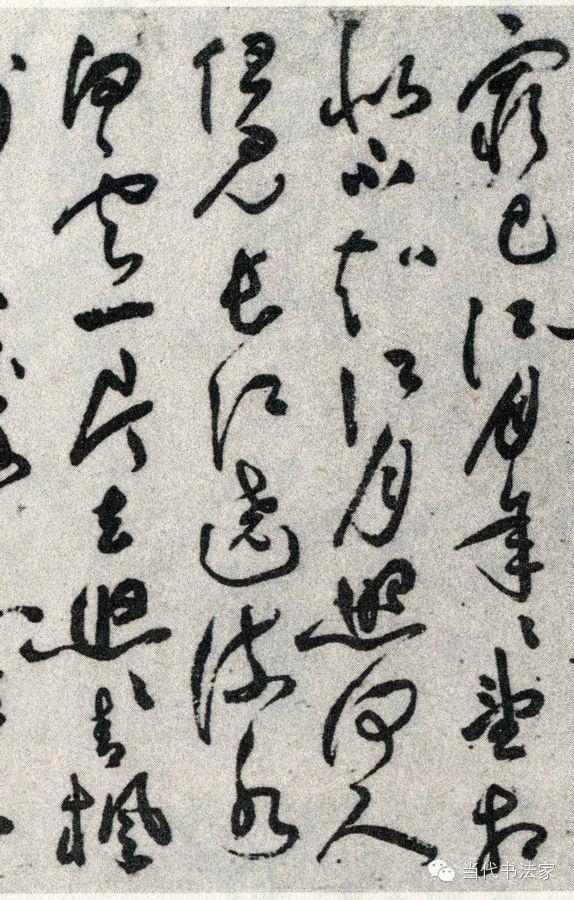 窮已江月年〻望相
似不知江月照何人
但見長江送流水
白雲一片去悠〻青楓
当代书法家